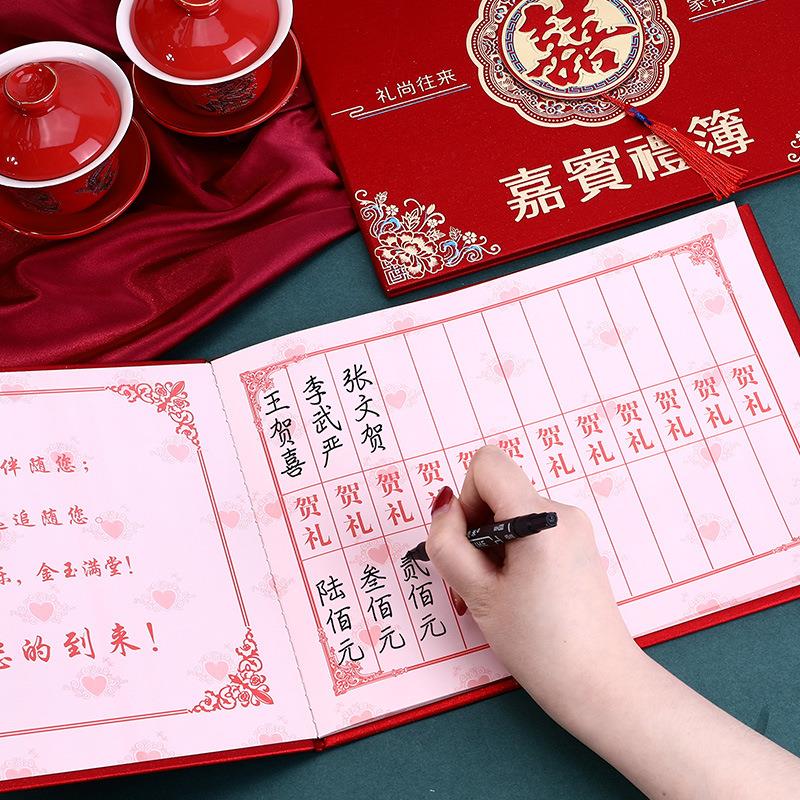 礼尚往来
囍
嘉賓禮簿
伴随您；
追随您。
乐，金玉满堂！
的到来！
王贺喜
李武严
张文贺
贺礼
贺礼
贺礼
贺礼
贺礼
贺礼
贺礼
贺礼
贺礼
贺礼
贺礼
贺礼
陆佰元
叁佰元
贰佰元